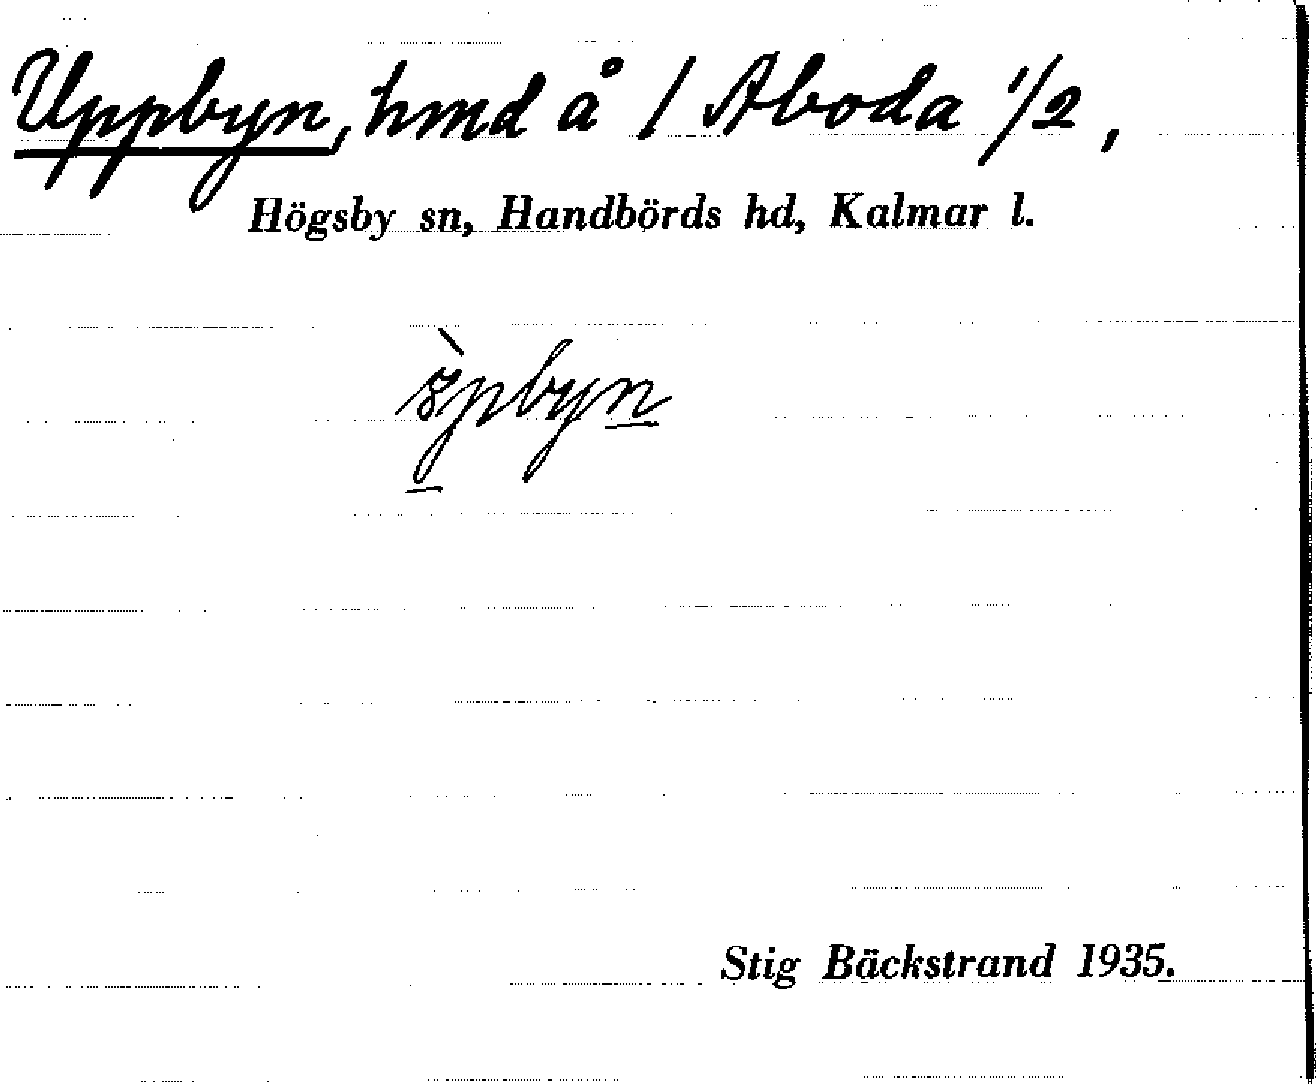 Uppbyn, hmd å / Aboda 1/2,
Högsby sn, Handbörds hd, Kalmar l.
Stig Bäckstrand 1935.